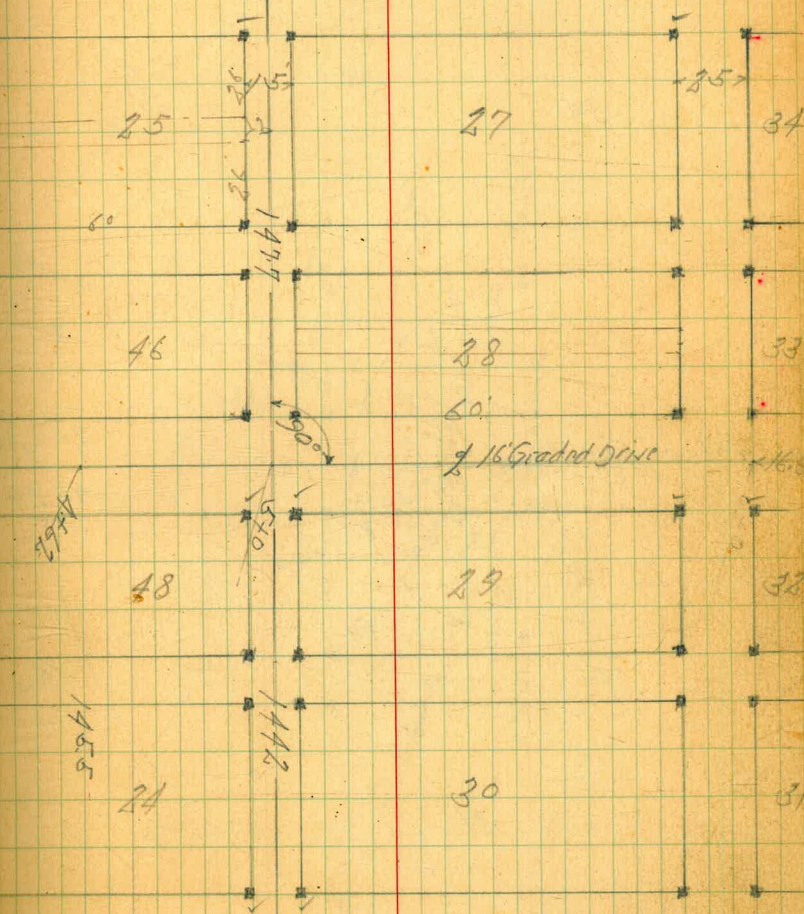 25
26
5
2
26
25
27
34
60
1477
46
28
33
60'
90°
16' Graded Drive
16.5
570
48
29
32
1455
1442
24
30
31